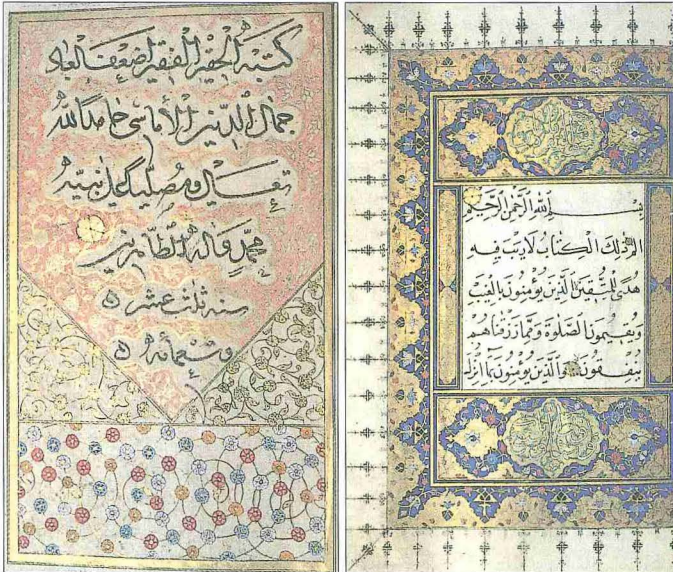 كتبه الحقير الفقير أضعف العباد
جمال الدين الأماسي حامدًا لله
تعالى ومصليًا على نبيه
محمد وآله الطاهرين
سنة ثلث عشر
وتسعمائة
بِسْمِ اللَّهِ الرَّحْمَٰنِ الرَّحِيمِ
الم ذَٰلِكَ الْكِتَابُ لَا رَيْبَ فِيهِ
هُدًى لِلْمُتَّقِينَ الَّذِينَ يُؤْمِنُونَ بِالْغَيْبِ
وَيُقِيمُونَ الصَّلَوٰةَ وَمِمَّا رَزَقْنَاهُمْ
يُنْفِقُونَ وَالَّذِينَ يُؤْمِنُونَ بِمَا أُنْزِلَ